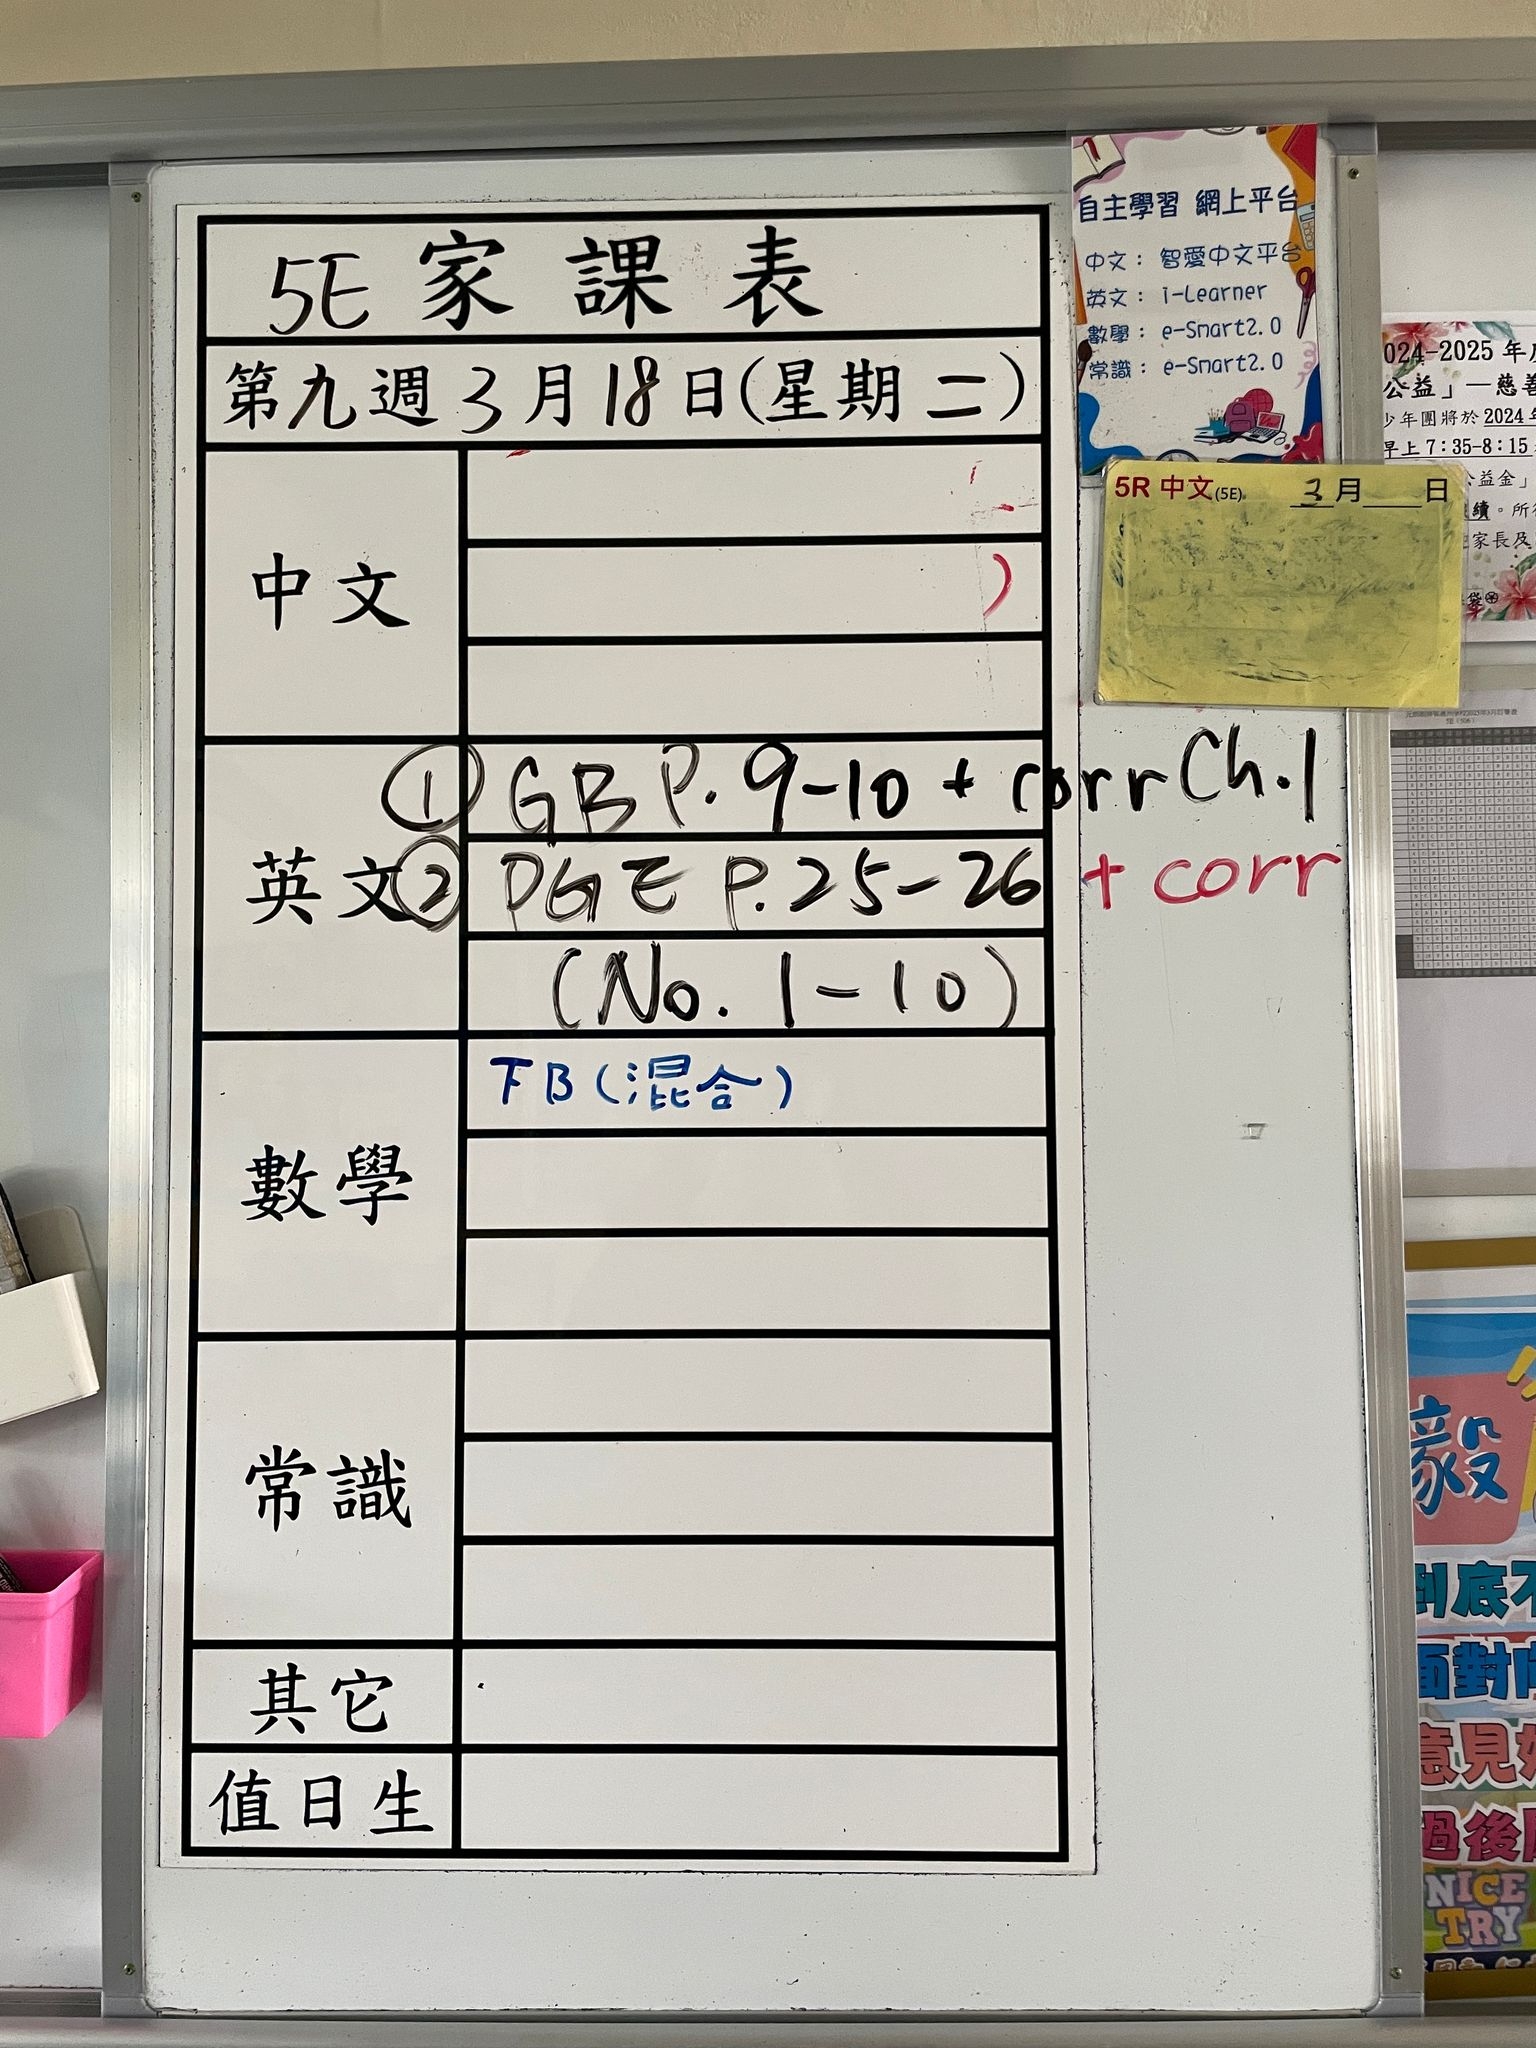 5E 家課表
第九週 3月18日(星期二)
中文
英文
① GB P. 9-10 + corr Ch.1
② PGE P. 25-26 + corr
(No. 1-10)
數學
下B(混合)
常識
其它
值日生
自主學習 網上平台
中文: 智愛中文平台
英文: i-Learner
數學: e-Smart2.0
常識: e-Smart2.0
5R 中文(5E) 3月 日
024-2025 年
公益」—慈善
少年團將於 2024
早上 7:35-8:15
公益金」
續。所
家長及
毅
到底不
面對
意見
過後
NICE
TRY